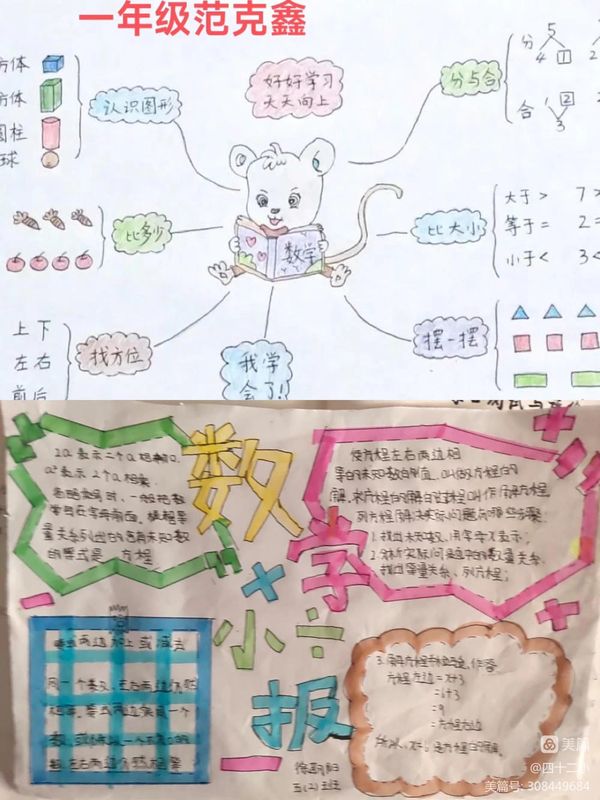 一年级范克鑫
好好学习
天天向上
方体
方体
圆柱
球
认识图形
分与合
分
5
4 1
2
合
1 2
3
比多少
数学
比大小
大于 > 7 >
等于 = 2 =
小于 < 3 <
上下
左右
前后
找方位
我学
会了!
摆一摆
数学小报
2a 表示二个a相加,
a² 表示 2个a相乘.
省略乘号时,一般把数
字写在字母前面.
量关系列出的含有未知数
的等式是 方程
使方程左右两边相
等的未知数的值,叫做方程的
解,求方程的解的过程叫作解方程.
列方程解决实际问题的步骤:
1. 找出未知数,用字母x表示;
2. 分析实际问题中的数量关系,
找出等量关系,列方程;
等式两边加上或减去
同一个数,左右两边仍然
相等.等式两边乘同一个
数,或除以一个不为0的
数,左右两边仍然相等
方程左边=x+3
=6+3
=9
=方程右边
所以,x=6是方程的解.
五(2)班
美篇
@四十二小
美篇号:308449684